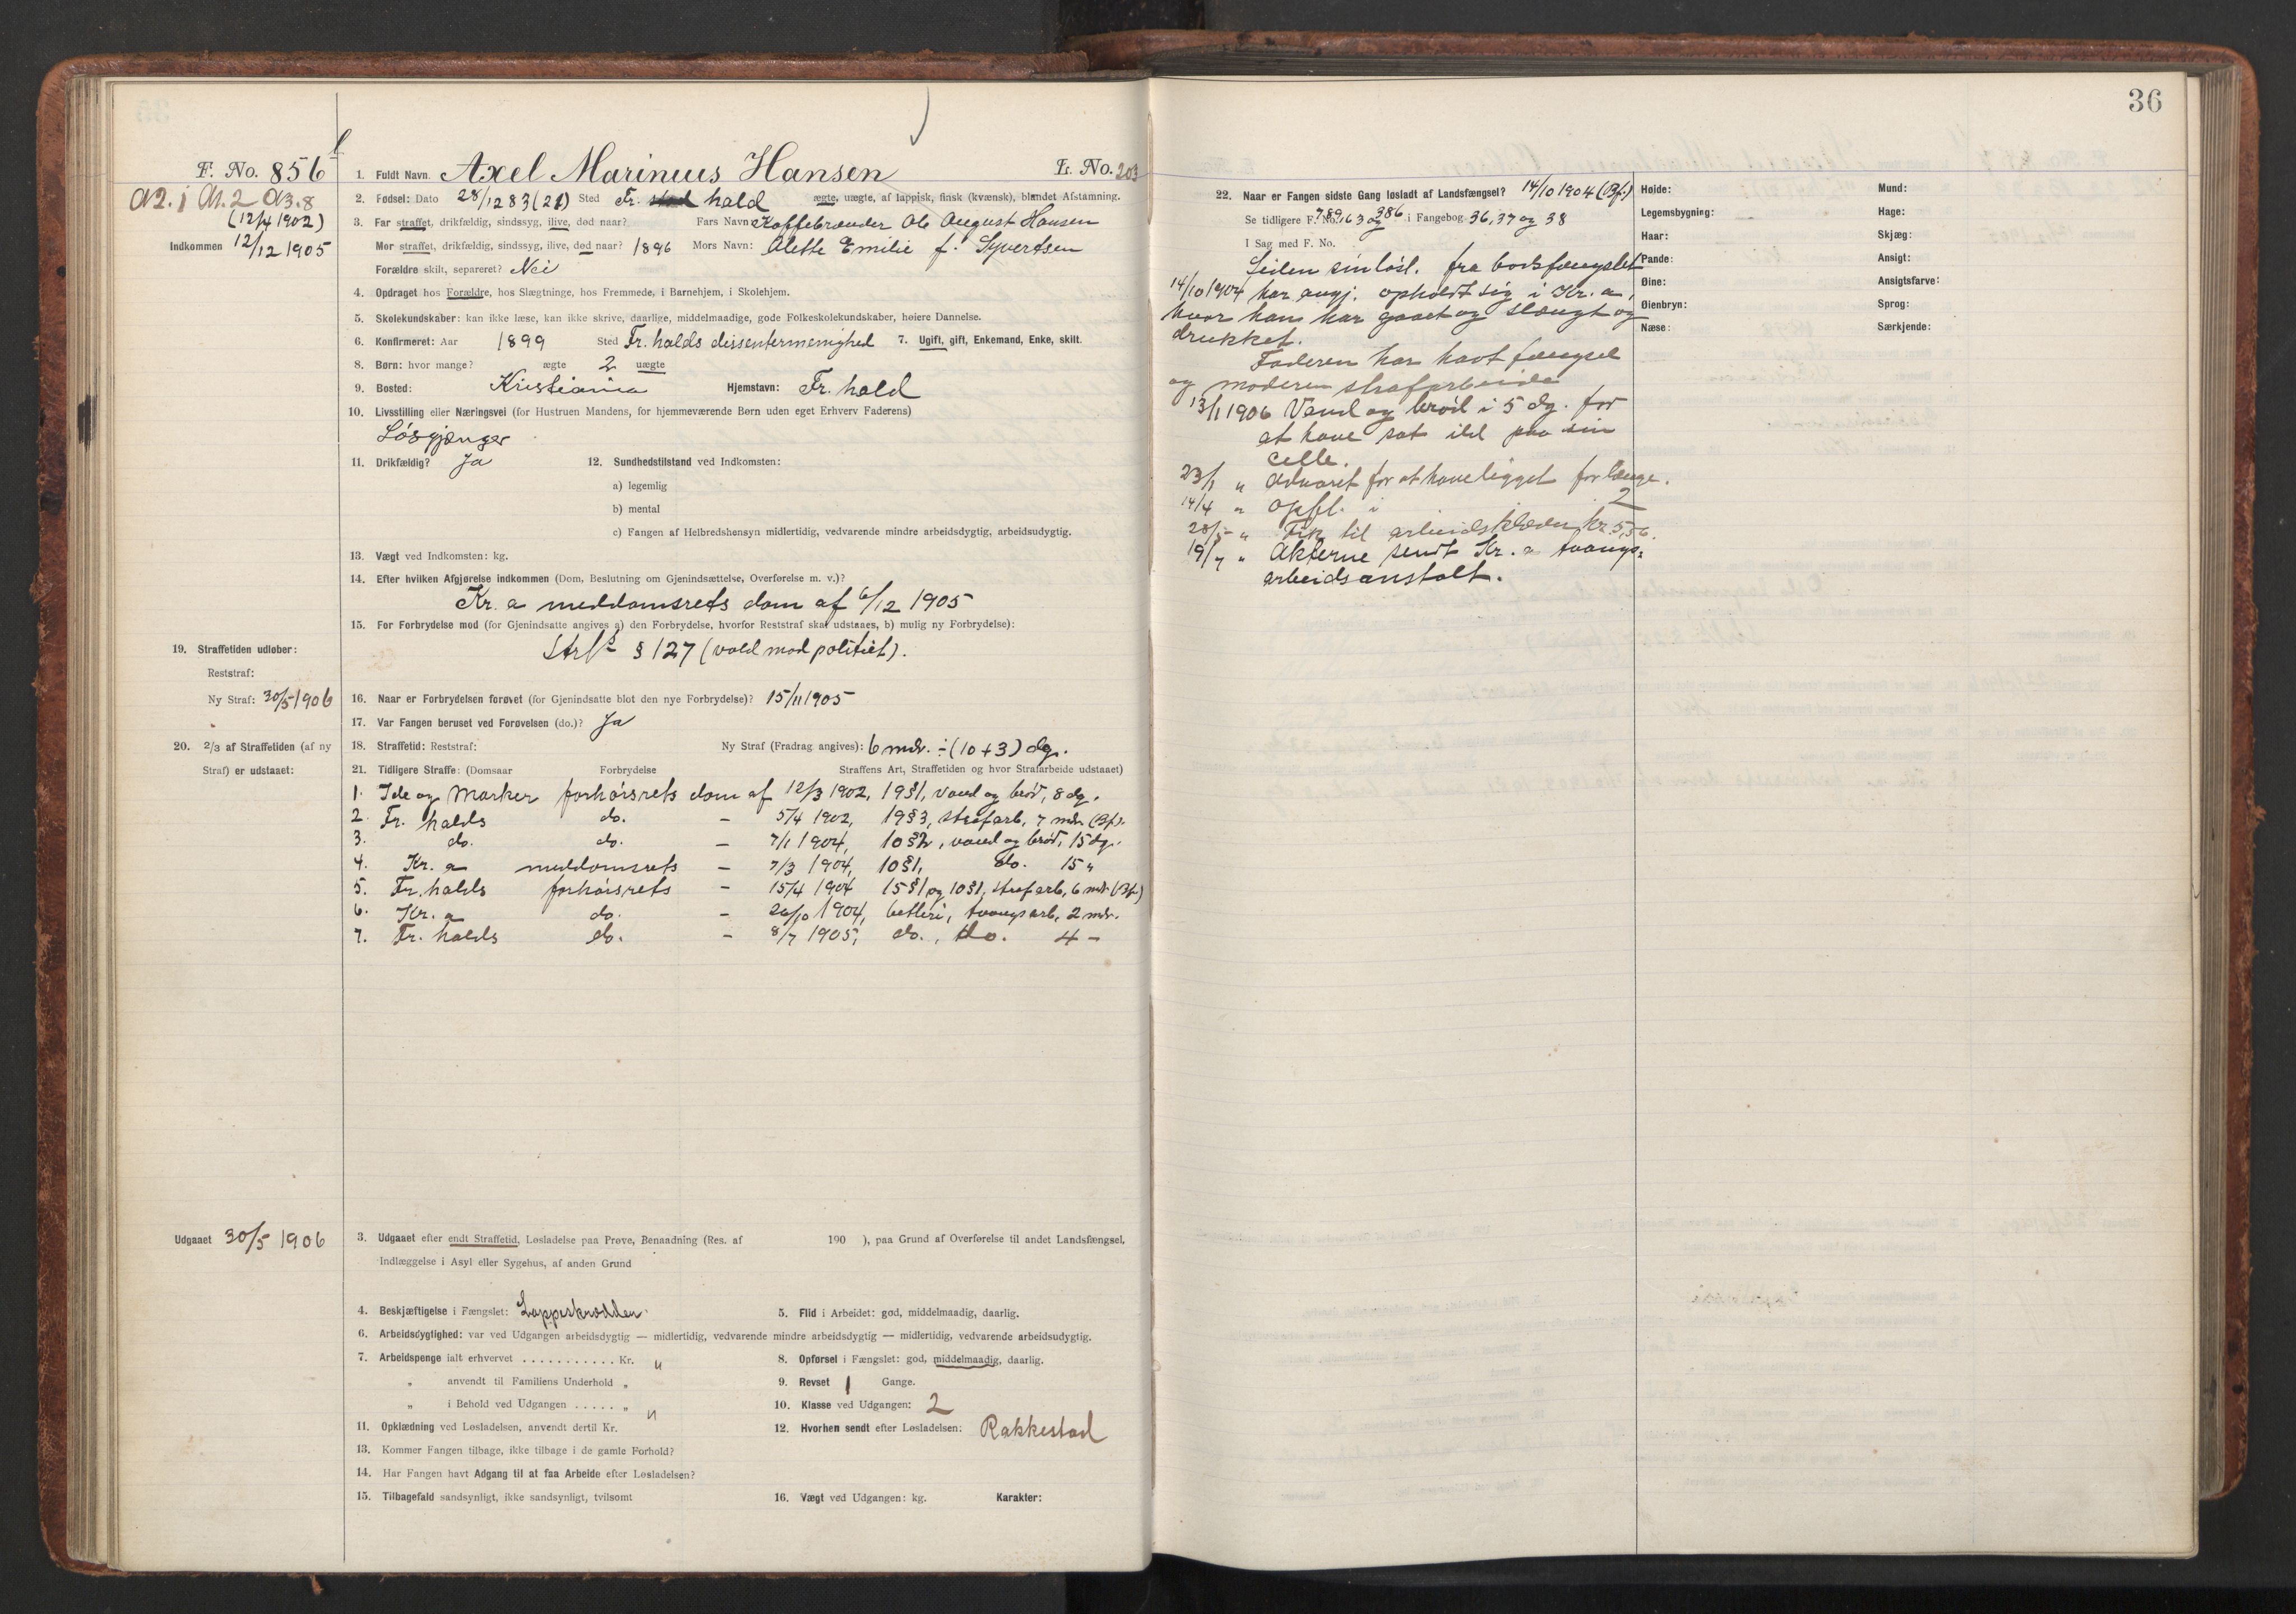 36
F. No. 856
1. Fuldt Navn. Axel Marinius Hansen L. No. 203
(12/4 1902)
Indkommen 12/12 1905
2. Fødsel: Dato 28/12 83 (21) Sted Fr. hald ægte, uægte, af lappisk, finsk (kvænsk), blandet Afstamning.
3. Far straffet, drikfældig, sindssyg, ilive, død naar? Fars Navn: Kaffebrænder Ole August Hansen
Mor straffet, drikfældig, sindssyg, ilive, død naar? 1896 Mors Navn: Olette Emilie f. Syvertsen
Forældre skilt, separeret? Nei
4. Opdraget hos Forældre, hos Slægtninge, hos Fremmede, i Barnehjem, i Skolehjem.
5. Skolekundskaber: kan ikke læse, kan ikke skrive, daarlige, middelmaadige, gode Folkeskolekundskaber, høiere Dannelse.
6. Konfirmeret: Aar 1899 Sted Fr. halds dissentermenighed 7. Ugift, gift, Enkemand, Enke, skilt.
8. Børn: hvor mange? ægte 2 uægte
9. Bosted: Kristiania Hjemstavn: Fr. hald
10. Livsstilling eller Næringsvei (for Hustruen Mandens, for hjemmeværende Børn uden eget Erhverv Faderens)
Løsgjænger
11. Drikfældig? Ja 12. Sundhedstilstand ved Indkomsten:
a) legemlig
b) mental
c) Fangen af Helbredshensyn midlertidig, vedvarende mindre arbeidsdygtig, arbeidsudygtig.
13. Vægt ved Indkomsten: kg.
14. Efter hvilken Afgjørelse indkommen (Dom, Beslutning om Gjenindsættelse, Overførelse m. v.)?
Kr. a meddomsrets dom af 6/12 1905
15. For Forbrydelse mod (for Gjenindsatte angives a) den Forbrydelse, hvorfor Reststraf skal udstaaes, b) mulig ny Forbrydelse):
§ 127 (vold mod politiet).
19. Straffetiden udløber:
Reststraf:
Ny Straf: 30/5 1906
16. Naar er Forbrydelsen forøvet (for Gjenindsatte blot den nye Forbrydelse)? 15/11 1905
17. Var Fangen beruset ved Forøvelsen (do.)? Ja
20. 2/3 af Straffetiden (af ny
Straf) er udstaaet:
18. Straffetid: Reststraf: Ny Straf (Fradrag angives): 6 mdr. ÷ (10 + 3) dg.
21. Tidligere Straffe: (Domsaar Forbrydelse Straffens Art, Straffetiden og hvor Strafarbeide udstaaet)
1. Ide og Marker forhørsrets dom af 12/3 1902, 19 § 1, vand og brød, 8 dg.
2. Fr. halds do. - 5/4 1902, 19 § 3, strafarb, 7 mdr. (Bf).
3. do. do. - 7/1 1904, 10 § 2, vand og brød, 15 dg.
4. Kr. a meddomsrets - 7/3 1904, 10 § 1, do. 15 "
5. Fr. halds forhørsrets - 15/4 1904 15 § 1 og 10 § 1, strafarb, 6 mdr. (Bf.)
6. Kr. a do. - 26/10 1904, betleri, tvangsarb, 2 mdr.
7. Fr. halds do. - 8/7 1905, do., do. 4 -
Udgaaet 30/5 1906
3. Udgaaet efter endt Straffetid, Løsladelse paa Prøve, Benaadning (Res. af 190 ), paa Grund af Overførelse til andet Landsfængsel,
Indlæggelse i Asyl eller Sygehus, af anden Grund
4. Beskjæftigelse i Fængslet: Lappeskrædder. 5. Flid i Arbeidet: god, middelmaadig, daarlig.
6. Arbeidsdygtighed: var ved Udgangen arbeidsdygtig — midlertidig, vedvarende mindre arbeidsdygtig — midlertidig, vedvarende arbeidsudygtig.
7. Arbeidspenge ialt erhvervet ........... Kr. " 8. Opførsel i Fængslet: god, middelmaadig, daarlig.
" anvendt til Familiens Underhold " 9. Revset 1 Gange.
" i Behold ved Udgangen ..... " " 10. Klasse ved Udgangen: 2
11. Opklædning ved Løsladelsen, anvendt dertil Kr. 12. Hvorhen sendt efter Løsladelsen: Rakkestad
13. Kommer Fangen tilbage, ikke tilbage i de gamle Forhold?
14. Har Fangen havt Adgang til at faa Arbeide efter Løsladelsen?
15. Tilbagefald sandsynligt, ikke sandsynligt, tvilsomt 16. Vægt ved Udgangen: kg. Karakter:
22. Naar er Fangen sidste Gang løsladt af Landsfængsel? 14/10 1904 (Bf.)
Se tidligere F. No. 789, 163 og 386 i Fangebog 36, 37 og 38
I Sag med F. No.
Siden sin løsl. fra bodsfængslet
14/10 1904 har angj. opholdt sig i Kr. a,
hvor han har gaaet og slængt og
drukket.
Faderen har havt fængsel
og moderen strafarbeide
13/1 1906 Vand og brød i 5 dg. for
at have sat ild paa sin
celle.
23/1 " Advaret for at have ligget for længe.
14/4 " Opfl. i 2
28/5 " Fik til arbeidsklæder kr. 5,56.
19/7 " Akterne sendt Kr. a tvangs=
arbeidsanstalt.
Høide: Mund:
Legemsbygning: Hage:
Haar: Skjæg:
Pande: Ansigt:
Øine: Ansigtsfarve:
Øienbryn: Sprog:
Næse: Særkjende: